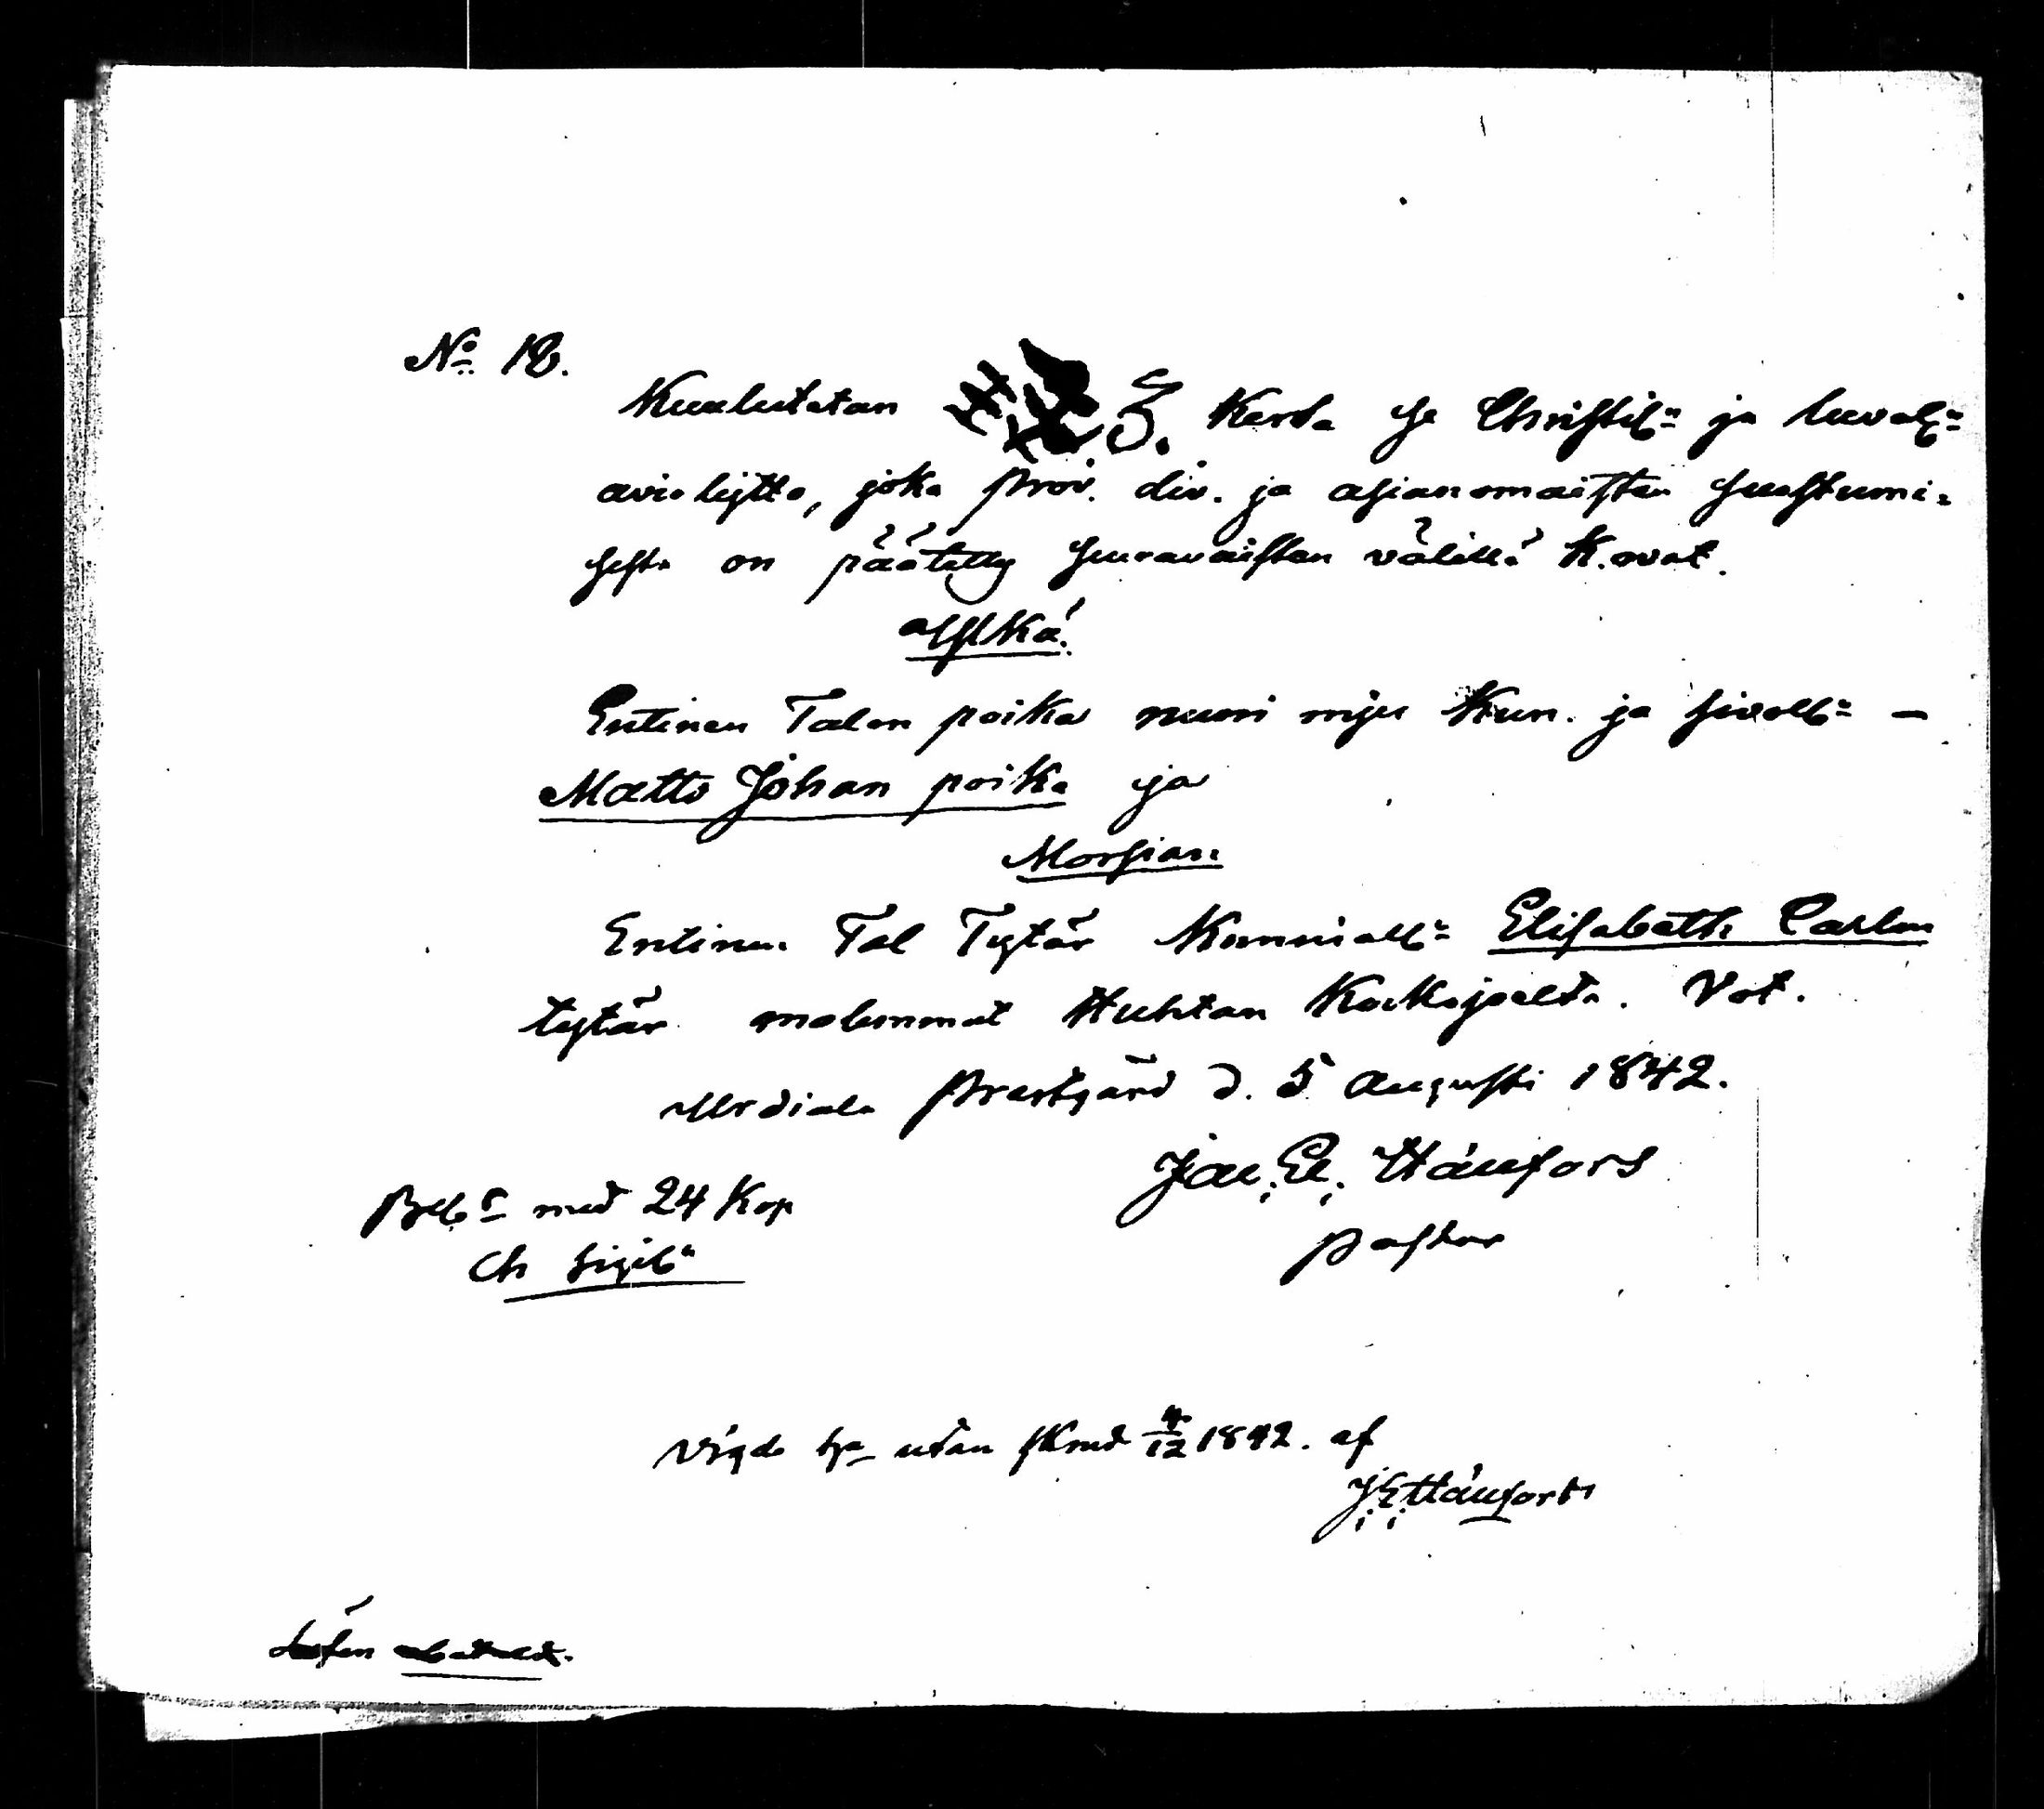 No 18.
Kuulutetan 3. Kerta se Christil: ja luval:
avioliitto, joka prov. div. ja asianomaisten suostumi-
sesta on päätetty seuravaisten välillä K. ovat.
Ylkä:
Entinen Talon poika nuori mies Kun. ja sivoll: –
Matts Johan poika ja
Morsian:
Entinen Tal Tytär Kunniall: Elisabeth Carlen
tytär molemmat Huhtan Kackijaelta. Vot.
Urdiala Prestgård d. 5 Augusti 1842.
Jac. El. Häufors
Pastor
med 24 Kop
Ch Sigil:
Vigde utan skrud 4/12 1842. af
J. E. Häufors
Lösen